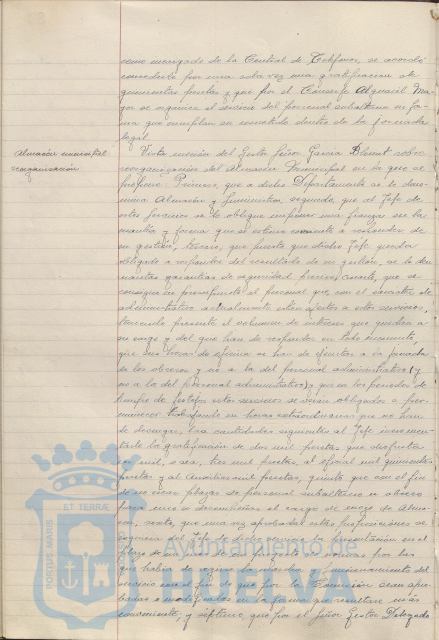 como encargado de la Central de Teléfonos, se acordó
concederle por una sola vez una gratificación de
quinientas pesetas y que por el Conserje Alguacil Ma-
yor se organice el servicio del personal subalterno en for-
ma que cumplan su cometido dentro de la jornada
legal.
Almacén municipal
reorganización
Vista moción del Gestor Señor Garcia Blunt sobre
reorganización del Almacén Municipal en la que se
propone: Primero, que a dicho Departamento se le deno-
mine Almacén y Suministros, segundo, que al Jefe de
estos Servicios se le obligue imponer una fianza en la
cuantia y forma que se estime conveniente a responder de
su gestión, tercero, que puesto que dicho Jefe queda
obligado a responder del resultado de su gestión, se le den
cuantas garantias de seguridad precise, cuarto, que se
consigne en presupuesto al personal que, con el caracter de
administrativo actualmente están afectos a estos servicios,
teniendo presente el volumen de intereses que quedan a
su cargo y del que han de responder en todo momento,
que sus horas de oficina se han de ajustar a la jornada
de los obreros y no a la del personal administrativo (y
no a la del personal administrativo) y que en los periodos de
tiempo de festejos estos servicios se verán obligados a per-
manecer trabajando en horas extraordinarias que no han
de devengar, las cantidades siguientes: al Jefe increment-
arle la gratificación de dos mil pesetas que disfruta
en mil, o sea, tres mil pesetas, al oficial mil quinientas
pesetas y al Auxiliar mil pesetas, quinto que con el fin
de no crear plazas de personal subalterno u obrero
para que desempeñen el cargo de mozo de Alma-
cén, sexto, que una vez aprobadas estas proposiciones se
del Jefe de este servicio la presentación en el
plazo de por las
que habrá de regirse la marcha y funcionamiento del
servicio con el fin de que por la Comisión sean apro-
badas o modificadas en la forma que resultare más
conveniente, y séptimo, que por el Señor Gestor Delegado
ET TERRÆ
PORTUS MARIS
CUSTODIA
Ayuntamiento de
HUELVA